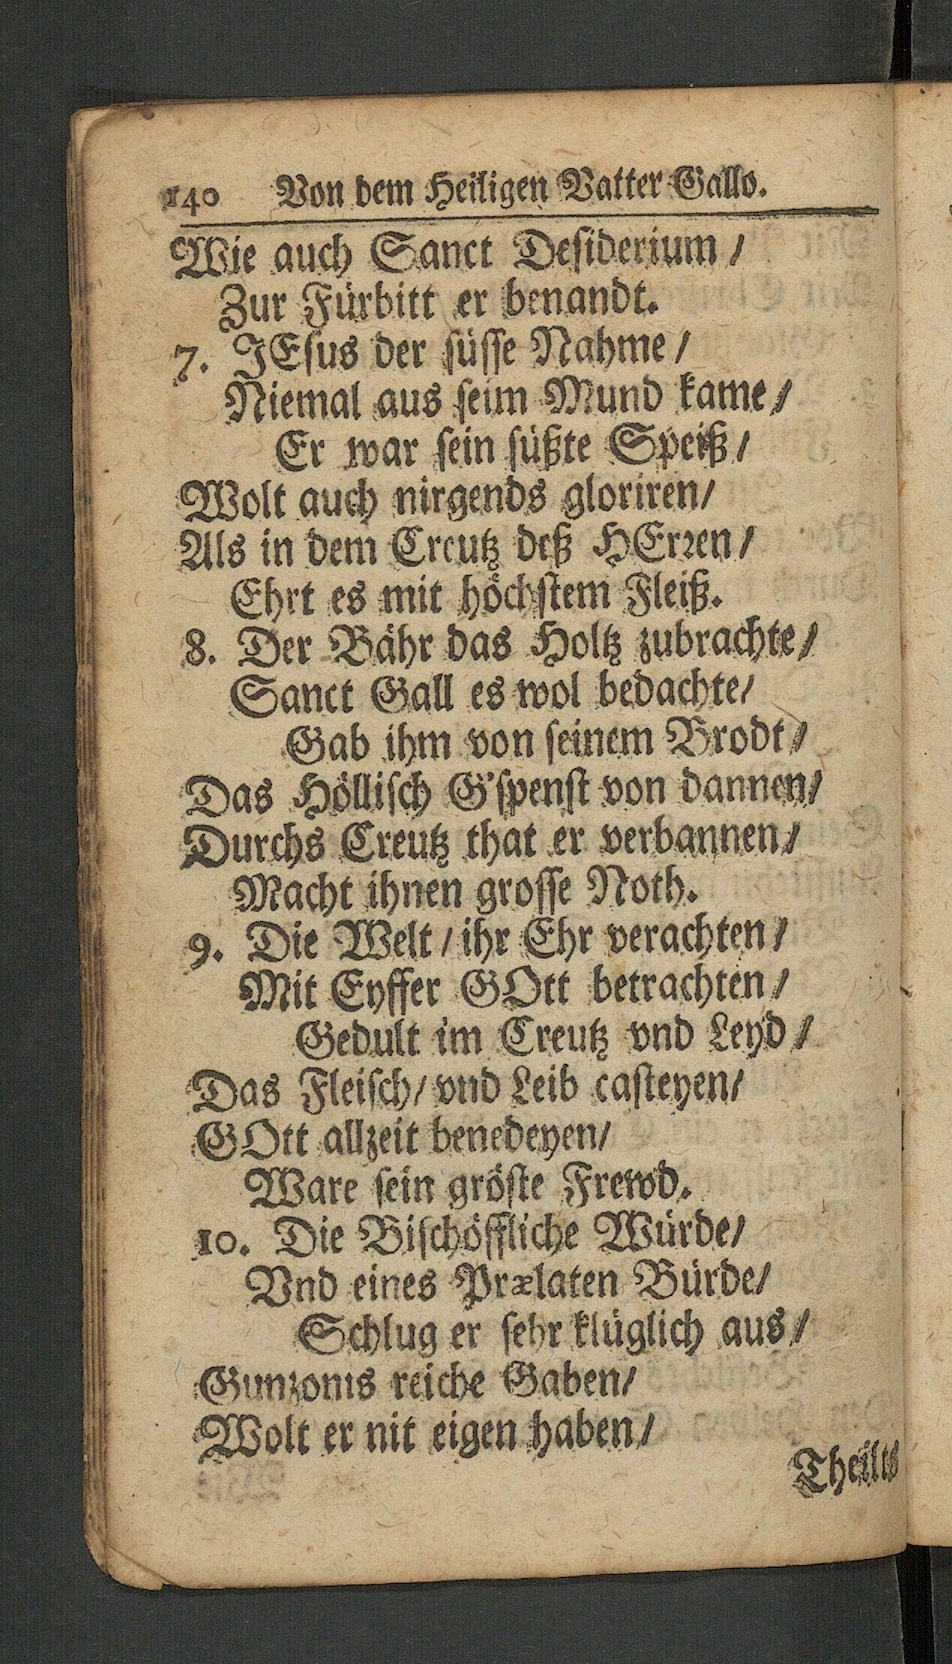 140 Von dem Heiligen Vatter Gallo.
Wie auch Sanct Desiderium /
Zur Fürbitt er benandt.
7. JEsus der süsse Nahme /
Niemal aus seim Mund kame /
Er war sein süßte Speiß /
Wolt auch nirgends gloriren /
Als in dem Creutz deß HErren /
Ehrt es mit höchstem Fleiß.
8. Der Bähr das Holtz zubrachte /
Sanct Gall es wol bedachte /
Gab ihm von seinem Brodt /
Das Höllisch G'spenst von dannen /
Durchs Creutz that er verbannen /
Macht ihnen grosse Noth.
9. Die Welt / ihr Ehr verachten /
Mit Eyffer GOtt betrachten /
Gedult im Creutz vnd Leyd /
Das Fleisch / vnd Leib casteyen /
GOtt allzeit benedeyen /
Ware sein gröste Frewd.
10. Die Bischöffliche Würde /
Vnd eines Prælaten Bürde /
Schlug er sehr klüglich aus /
Gunzonis reiche Gaben /
Wolt er nit eigen haben /
Theilts